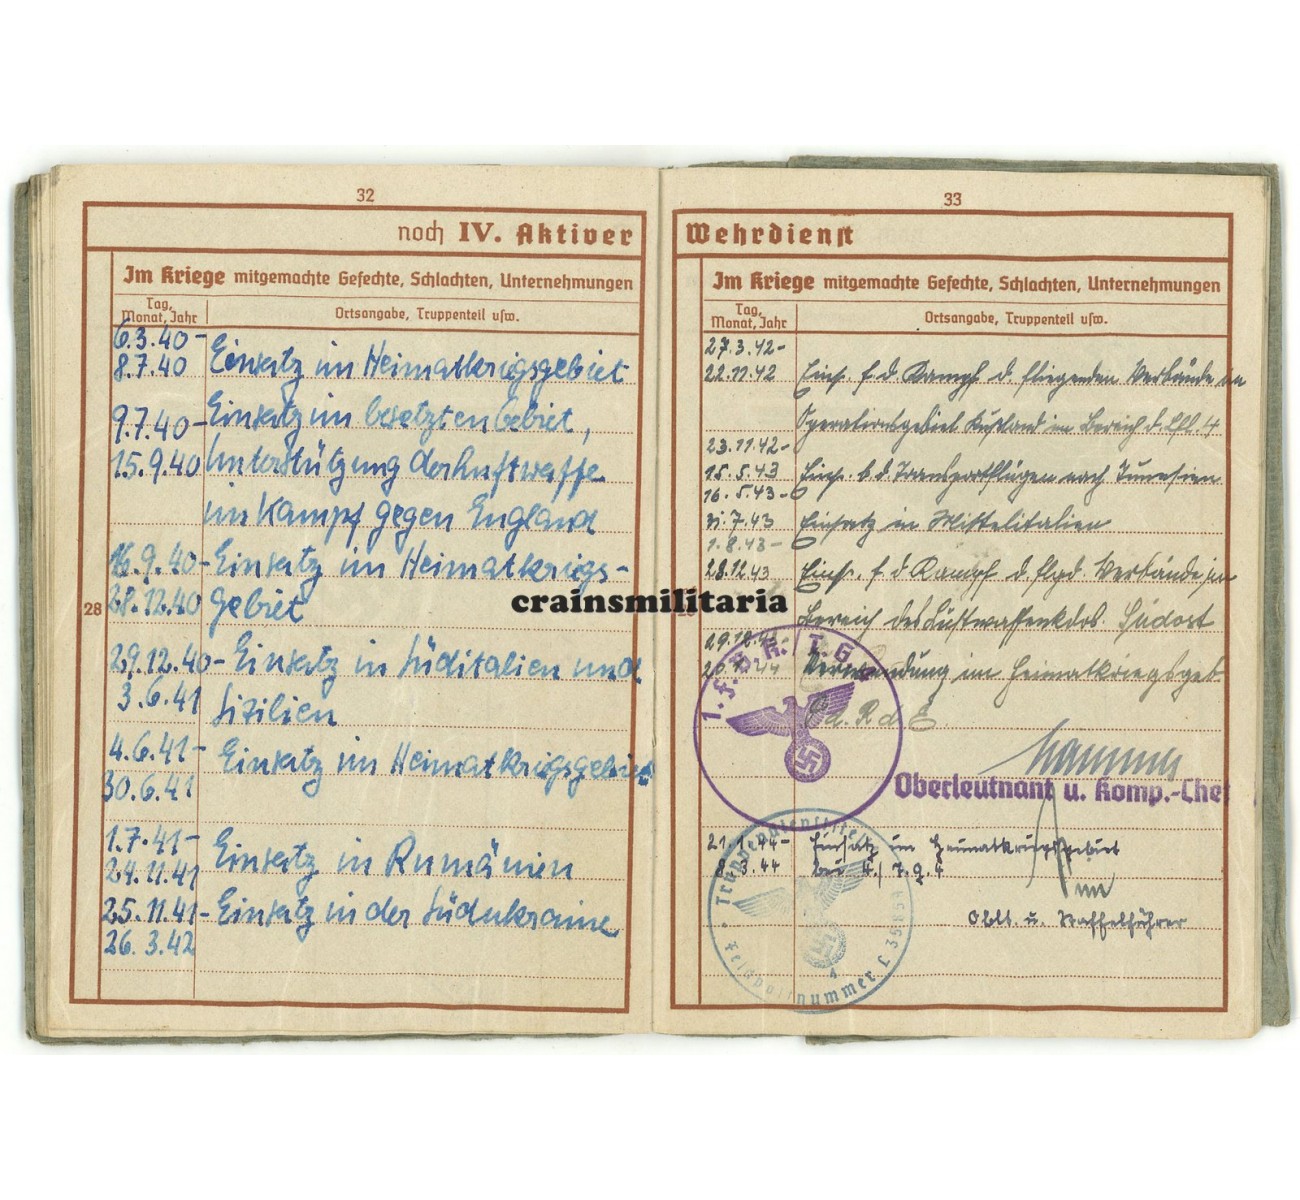 32
noch IV. Aktiver
Im Kriege mitgemachte Gefechte, Schlachten, Unternehmungen
Tag, Monat, Jahr
Ortsangabe, Truppenteil usw.
6.3.40-
8.7.40 Einsatz im Heimatkriegsgebiet
9.7.40- Einsatz im besetzten Gebiet,
15.9.40 Unterstützung der Luftwaffe
im Kampf gegen England
16.9.40- Einsatz im Heimatkriegs-
28.12.40 gebiet
29.12.40- Einsatz in Süditalien und
3.6.41 Sizilien
4.6.41- Einsatz im Heimatkriegsgebiet
30.6.41
1.7.41-
24.11.41 Einsatz in Rumänien
25.11.41- Einsatz in der Südukraine
26.3.42
28
crainsmilitaria
33
Wehrdienst
Im Kriege mitgemachte Gefechte, Schlachten, Unternehmungen
Tag, Monat, Jahr
Ortsangabe, Truppenteil usw.
27.3.42-
22.11.42 Eins. f. d. Kampf d. fliegenden Verbände im
Operationsgebiet Rußland im Bereich d. Lfl. 4
23.11.42-
15.5.43 Eins. b. d. Transportflügen nach Tunesien
16.5.43-
31.7.43 Einsatz in Mittelitalien
1.8.43-
28.12.43 Eins. f. d. Kampf d. flgd. Verbände im
Bereich des Luftwaffenkdos. Südost
29.12.43-
20.1.44 Verwendung im Heimatkriegsgeb.
Ed. R d. E
Oberleutnant u. Komp.-Chef
21.1.44- Einsatz im Heimatkriegsgebiet
8.3.44 bei 4./T.G.4
Oblt. u. Staffelführer
Feldpostnummer L 35
4